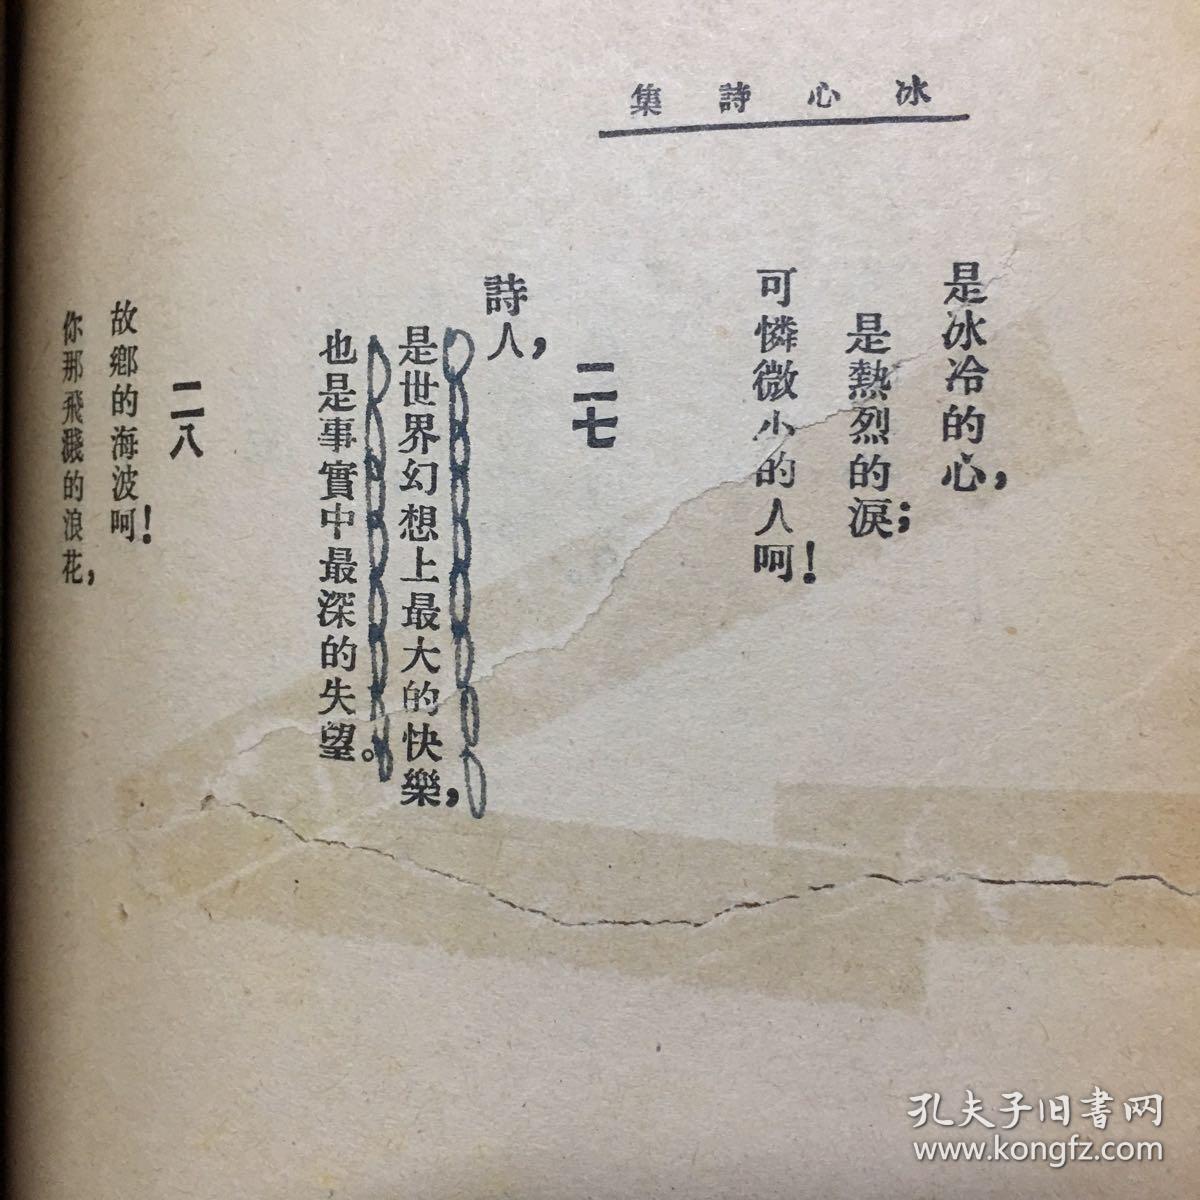 冰心詩集
是冰冷的心，
是熱烈的淚；
可憐微小的人呵！
二七
詩人，
是世界幻想上最大的快樂，
也是事實中最深的失望。
二八
故鄉的海波呵！
你那飛濺的浪花，
孔夫子旧書网
www.kongfz.com